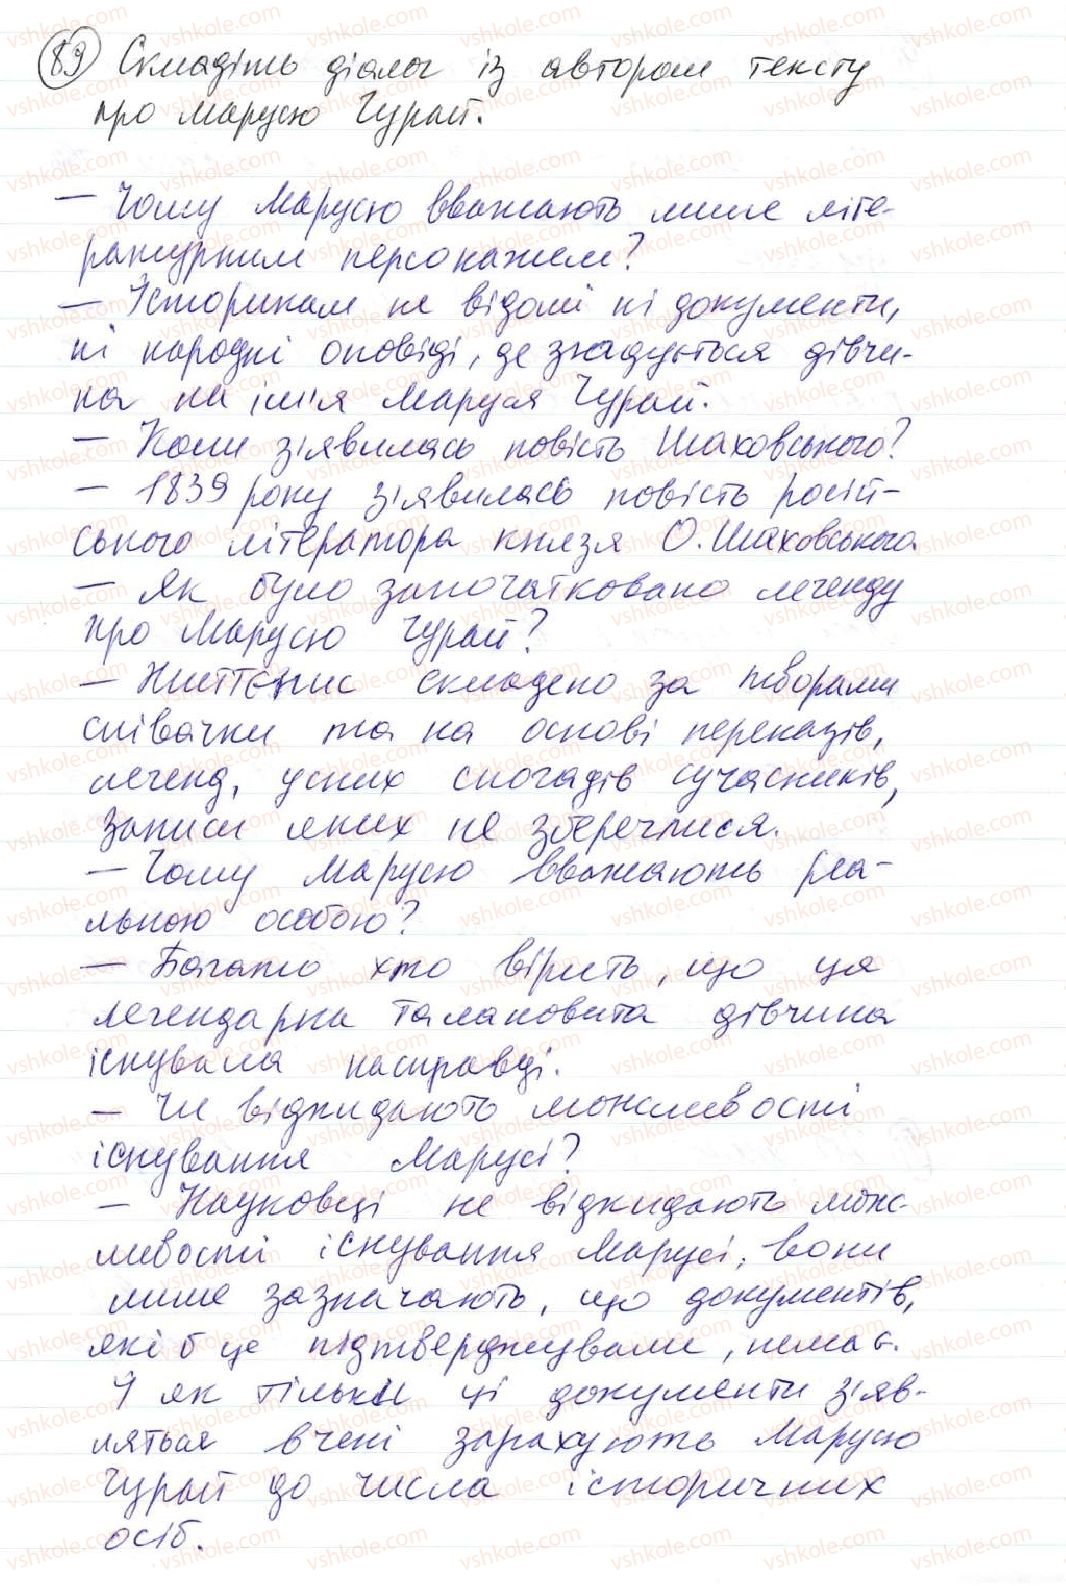 89 Складіть діалог із автором тексту
про Марусю Чурай.
– Чому Марусю вважають лише літе-
ратурним персонажем?
– Історикам не відомі ні документи,
ні народні оповіді, де згадується дівчи-
на на ім'я Маруся Чурай.
– Коли з'явилась повість Шаховського?
– 1839 року з'явилась повість росій-
ського літератора князя О. Шаховського.
– Як було започатковано легенду
про Марусю Чурай?
– Життєпис складено за творами
співачки та на основі переказів,
легенд, усних спогадів сучасників,
записи яких не збереглися.
– Чому Марусю вважають реа-
льною особою?
– Багато хто вірить, що ця
легендарна талановита дівчина
існувала насправді.
– Чи відкидають можливості
існування Марусі?
– Науковці не відкидають мож-
ливості існування Марусі, вони
лише зазначають, що документів,
які б це підтверджували, немає.
І як тільки ці документи з'яв-
ляться вчені зарахують Марусю
Чурай до числа історичних
осіб.